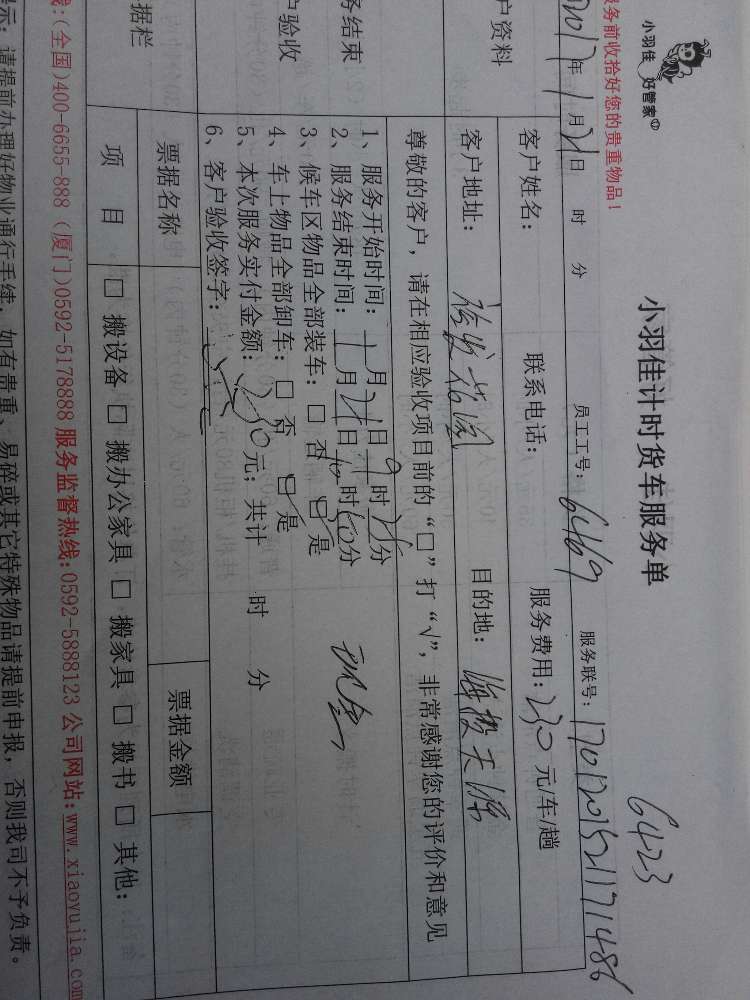 小羽佳 好管家
小羽佳计时货车服务单
6423
服务前收拾好您的贵重物品!
2017年1月21日 时 分 员工工号: 6469 服务联号: 1701201521171486
户资料
客户姓名: 联系电话: 服务费用: 230元/车/趟
客户地址: 目的地: 天源
尊敬的客户, 请在相应验收项目前的“□”打“√”, 非常感谢您的评价和意见
务结束
户验收
1、服务开始时间: 月21日9时 分
2、服务结束时间: 月21日10时50分
3、候车区物品全部装车: □ 否 □ 是
4、车上物品全部卸车: □ 否 □ 是
5、本次服务实付金额: 230元; 共计 时 分
6、客户验收签字:
现金
据栏
票据名称 票据金额
项 目 □ 搬设备 □ 搬办公家具 □ 搬家具 □ 搬书 □ 其他:
线:(全国)400-6655-888 (厦门)0592-5178888 服务监督热线:0592-5888123 公司网站:www.xiaoyujia.com
示: 请提前办理好物业通行手续, 如有贵重、易碎或其它特殊物品请提前申报, 否则我司不予负责。